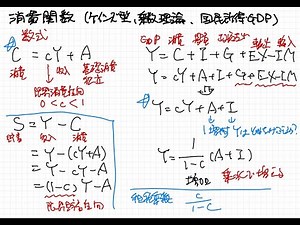 消費関数(ケインズ型,乗数理論,国民所得GDP)
数式
C = cY + A
消費 収入 基礎消費
限界消費性向
0 < c < 1
S = Y - C
貯蓄 収入 消費
= Y - (cY + A)
= Y - cY - A
= (1 - c) Y - A
限界貯蓄性向
GDP 消費 投資 輸出 輸入
Y = C + I + G + EX - IM
Y = cY + A + I + G + EX - IM
Y = cY + A + I
Y = 1/(1-c) (A + I)
増加
c/(1-c)